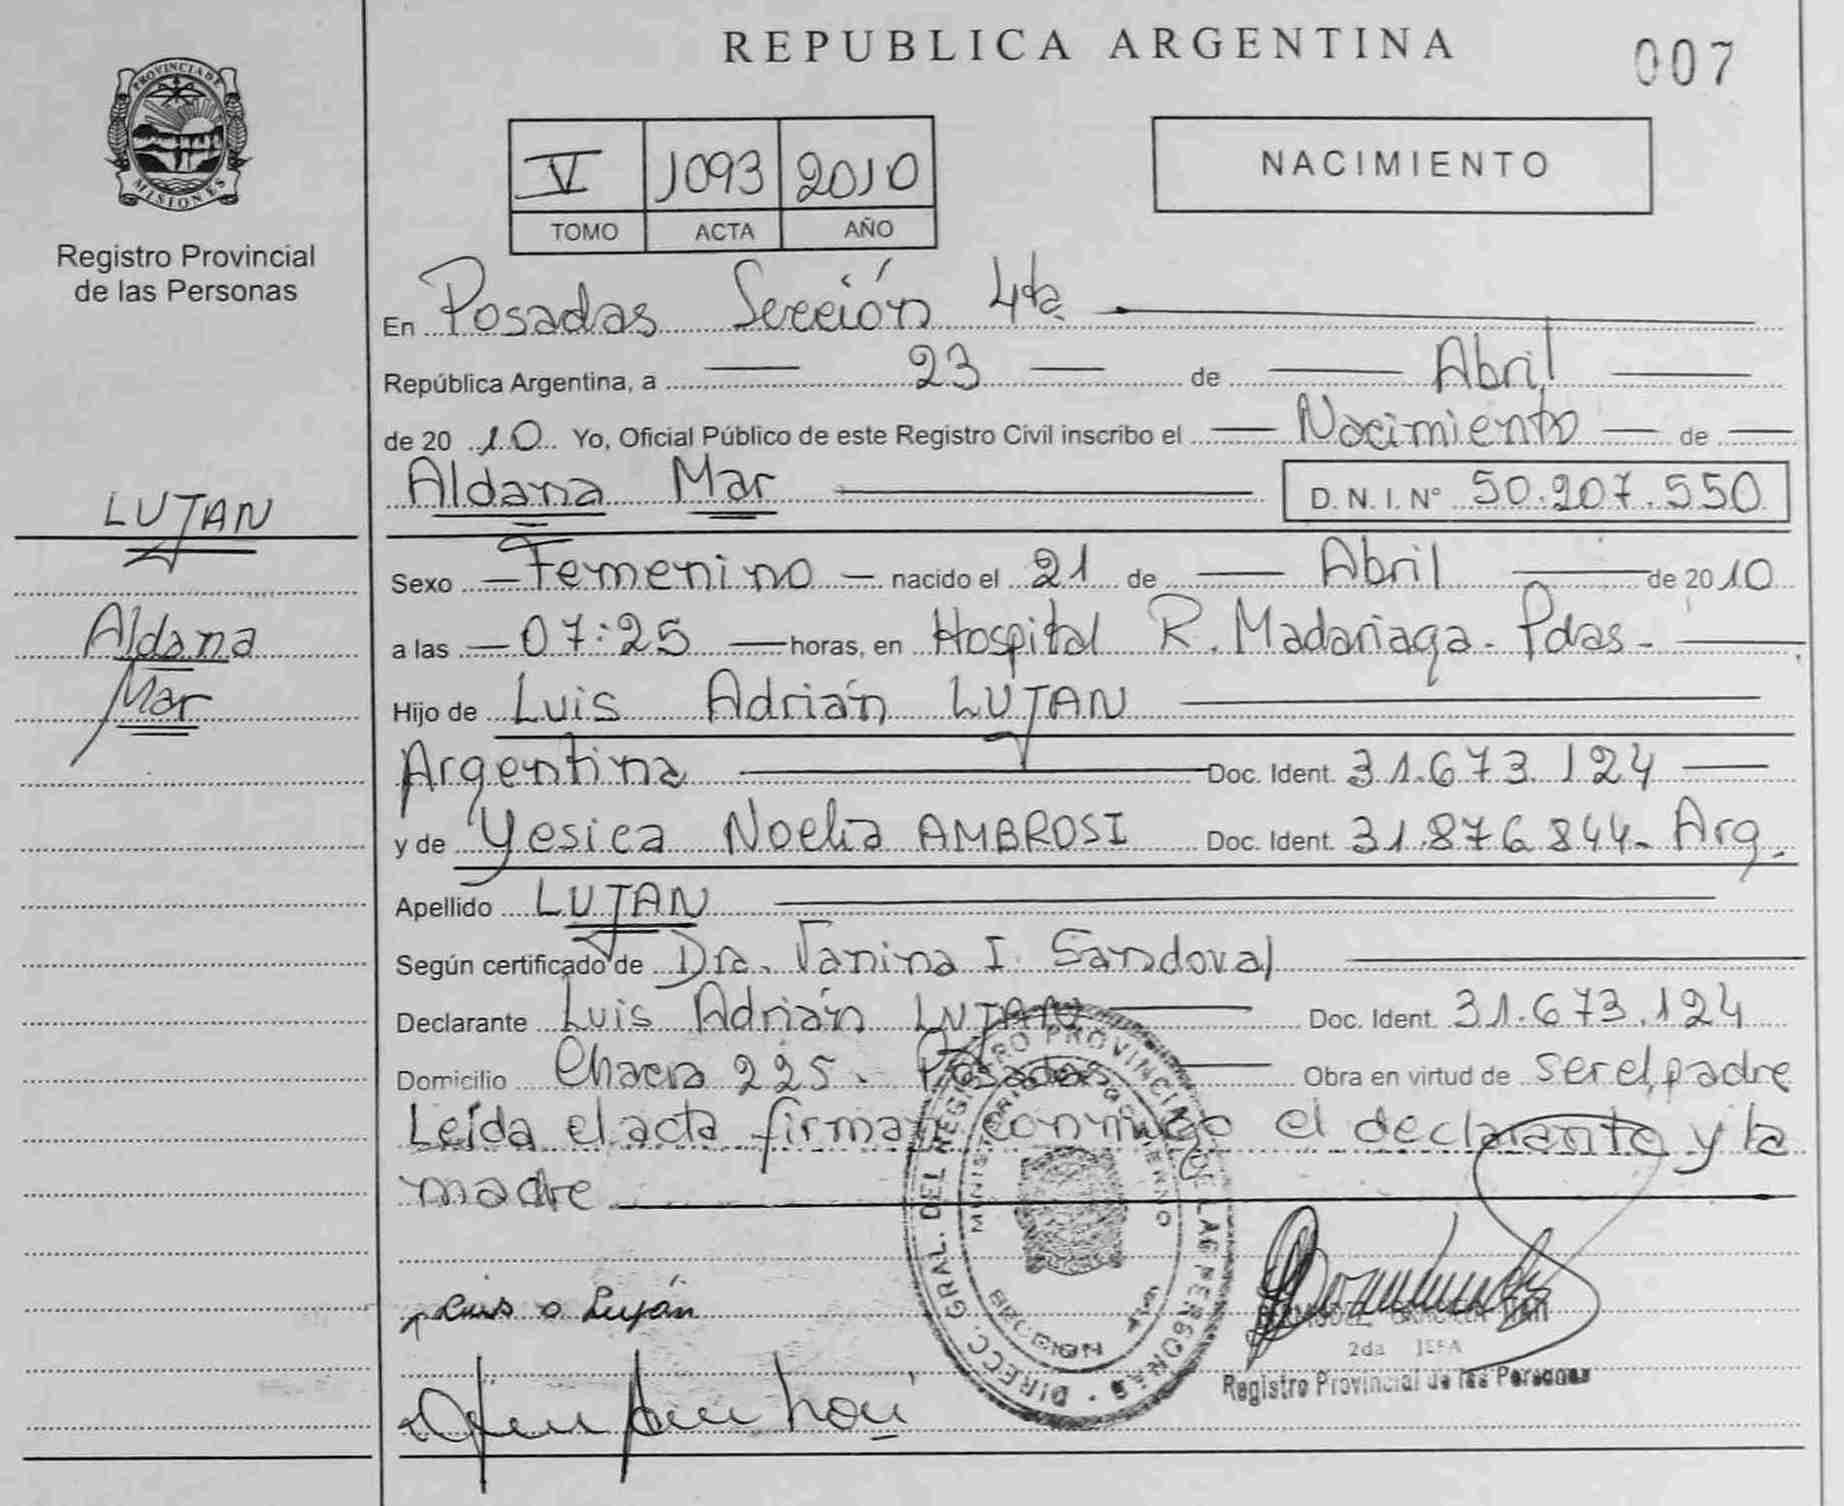 REPUBLICA ARGENTINA
007
PROVINCIA DE
MISIONES
Registro Provincial
de las Personas
V 1093 2010
TOMO ACTA AÑO
NACIMIENTO
En Posadas Sección 4ta
República Argentina, a 23 de Abril
de 2010 Yo, Oficial Público de este Registro Civil inscribo el Nacimiento de
Aldana Mar D. N. I. N° 50.207.550
LUJAN
Aldana
Mar
Sexo Femenino nacido el 21 de Abril de 2010
a las 07:25 horas, en Hospital R. Madariaga - Pdas -
Hijo de Luis Adrián LUJAN
Argentina Doc. Ident. 31.673.124
y de Yesica Noelia AMBROSI Doc. Ident. 31.876.844 - Arg.
Apellido LUJAN
Según certificado de Dra. Vanina I. Sandoval
Declarante Luis Adrián LUJAN Doc. Ident. 31.673.124
Domicilio Chacra 225. Posadas Obra en virtud de ser el padre
Leída el acta firman conmigo el declarante y la
madre
DIRECC. GRAL. DEL REGISTRO PROVINCIAL DE LAS PERSONAS
MINISTERIO DE GOBIERNO
Luis a Luján
GRACIELA
2da JEFA
Registro Provincial de las Personas